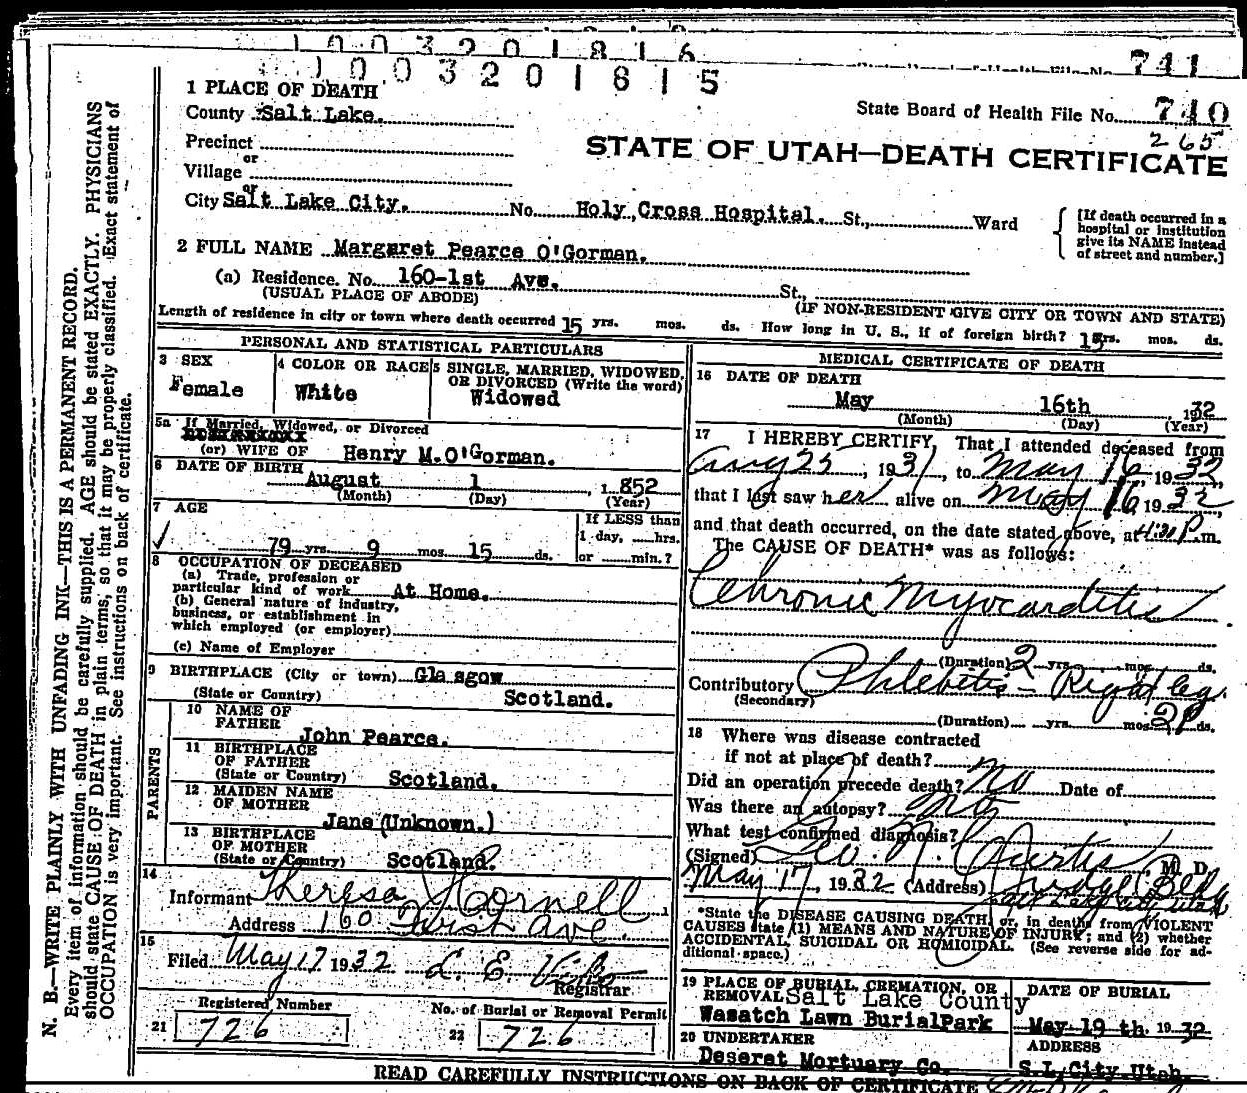 1 0 0 3 2 0 1 8 1 6
741
1 0 0 3 2 0 1 8 1 5
1 PLACE OF DEATH
State Board of Health File No. 740
265
County Salt Lake.
STATE OF UTAH—DEATH CERTIFICATE
Precinct
or
Village
or
City Salt Lake City. No. Holy Cross Hospital. St., Ward
[If death occurred in a
hospital or institution
give its NAME instead
of street and number.]
2 FULL NAME Margaret Pearce O'Gorman.
(a) Residence. No. 160-1st Ave. St.,
(USUAL PLACE OF ABODE) (IF NON-RESIDENT GIVE CITY OR TOWN AND STATE)
Length of residence in city or town where death occurred 15 yrs. mos. ds. How long in U. S., if of foreign birth? 15 yrs. mos. ds.
PERSONAL AND STATISTICAL PARTICULARS
3 SEX
Female
4 COLOR OR RACE
White
5 SINGLE, MARRIED, WIDOWED,
OR DIVORCED (Write the word)
Widowed
5a If Married, Widowed, or Divorced
(or) WIFE OF Henry M. O'Gorman.
6 DATE OF BIRTH
August 1, 1852
(Month) (Day) (Year)
7 AGE
79 yrs. 9 mos. 15 ds.
If LESS than
1 day, hrs.
or min.?
8 OCCUPATION OF DECEASED
(a) Trade, profession or
particular kind of work At Home.
(b) General nature of industry,
business, or establishment in
which employed (or employer)
(c) Name of Employer
9 BIRTHPLACE (City or town) Glasgow
(State or Country) Scotland.
PARENTS
10 NAME OF
FATHER
John Pearce.
11 BIRTHPLACE
OF FATHER
(State or Country) Scotland.
12 MAIDEN NAME
OF MOTHER
Jane (Unknown.)
13 BIRTHPLACE
OF MOTHER
(State or Country) Scotland.
14
Informant Theresa Cornell
Address 160 First Ave.
15
Filed May 17 1932 Registrar
Registered Number
21 726
No. of Burial or Removal Permit
22 726
MEDICAL CERTIFICATE OF DEATH
16 DATE OF DEATH
May 16th, 1932
(Month) (Day) (Year)
17 I HEREBY CERTIFY, That I attended deceased from
Aug 25, 1931, to May 16, 1932,
that I last saw her alive on May 16 1932,
and that death occurred, on the date stated above, at 4:30 P. m.
The CAUSE OF DEATH* was as follows:
Chronic Myocarditis
(Duration) 2 yrs. mos. ds.
Contributory Phlebitis - Right leg.
(Secondary)
(Duration) yrs. mos. 21 ds.
18 Where was disease contracted
if not at place of death?
Did an operation precede death? No Date of
Was there an autopsy? No
What test confirmed diagnosis?
(Signed) Geo. N. Curtis, M. D.
May 17, 1932 (Address) Judge Bldg
Salt Lake City Utah
*State the DISEASE CAUSING DEATH, or, in deaths from VIOLENT
CAUSES state (1) MEANS AND NATURE OF INJURY; and (2) whether
ACCIDENTAL, SUICIDAL OR HOMICIDAL. (See reverse side for ad-
ditional space.)
19 PLACE OF BURIAL, CREMATION, OR
REMOVAL Salt Lake County
Wasatch Lawn Burial Park
DATE OF BURIAL
May 19 th 1932
20 UNDERTAKER
Deseret Mortuary Co.
ADDRESS
S.L.City.Utah.
READ CAREFULLY INSTRUCTIONS ON BACK OF CERTIFICATE
N. B.—WRITE PLAINLY WITH UNFADING INK—THIS IS A PERMANENT RECORD.
Every item of information should be carefully supplied. AGE should be stated EXACTLY. PHYSICIANS
should state CAUSE OF DEATH in plain terms, so that it may be properly classified. Exact statement of
OCCUPATION is very important. See instructions on back of certificate.